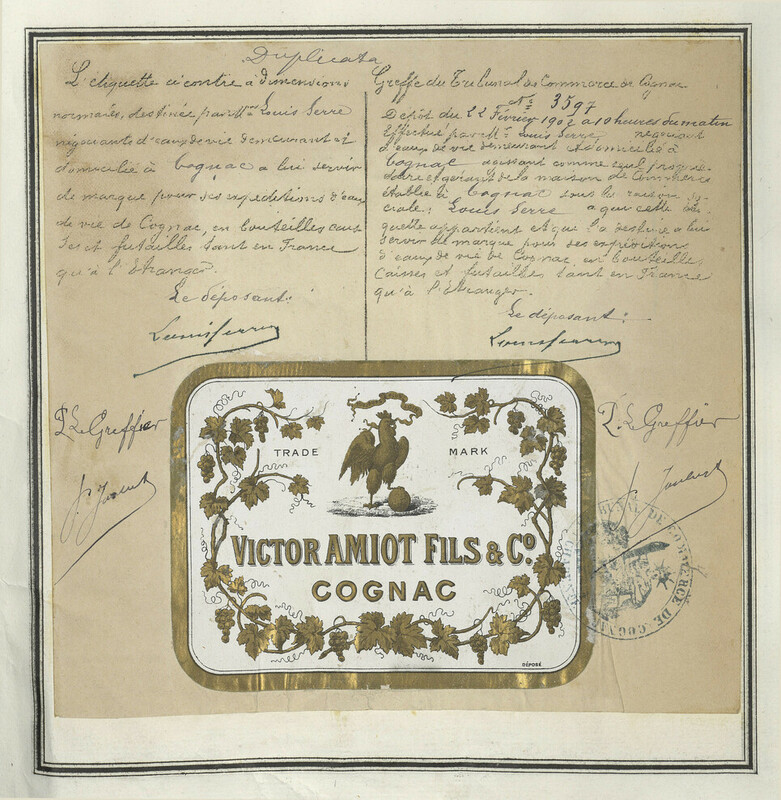 Duplicata
L'étiquette ci contre a dimensions
normales, destinée par Mr Louis Serre
négociante d'eaux de vie demeurant et
domiciliée à Cognac a lui servir
de marque pour ses expéditions d'eaux
de vie de Cognac, en bouteilles caisses
et futailles tant en France
qu'à l'Etranger.
Le déposant:
Greffe du Tribunal de Commerce de Cognac
N° 3597
Dépôt du 22 Février 1902 à 10 heures du matin
Effectué par Mr Louis Serre, négociant
d'eaux de vie demeurant et domicilié à
Cognac agissant comme seul proprié-
taire et gérant de la maison de Commerce
établie à Cognac sous la raison so-
ciale: Louis Serre a que cette éti-
quette appartient et que l'a destine a lui
servir de marque pour ses expéditions
d'eaux de vie de Cognac, en bouteilles
caisses et futailles tant en France
qu'à l'Etranger.
Le déposant:
P. Le Greffier
J. Joubert
P. Le Greffier
J. Joubert
TRADE MARK
VICTOR AMIOT FILS & Co.
COGNAC
DÉPOSÉ
TRIBUNAL DE COMMERCE DE COGNAC